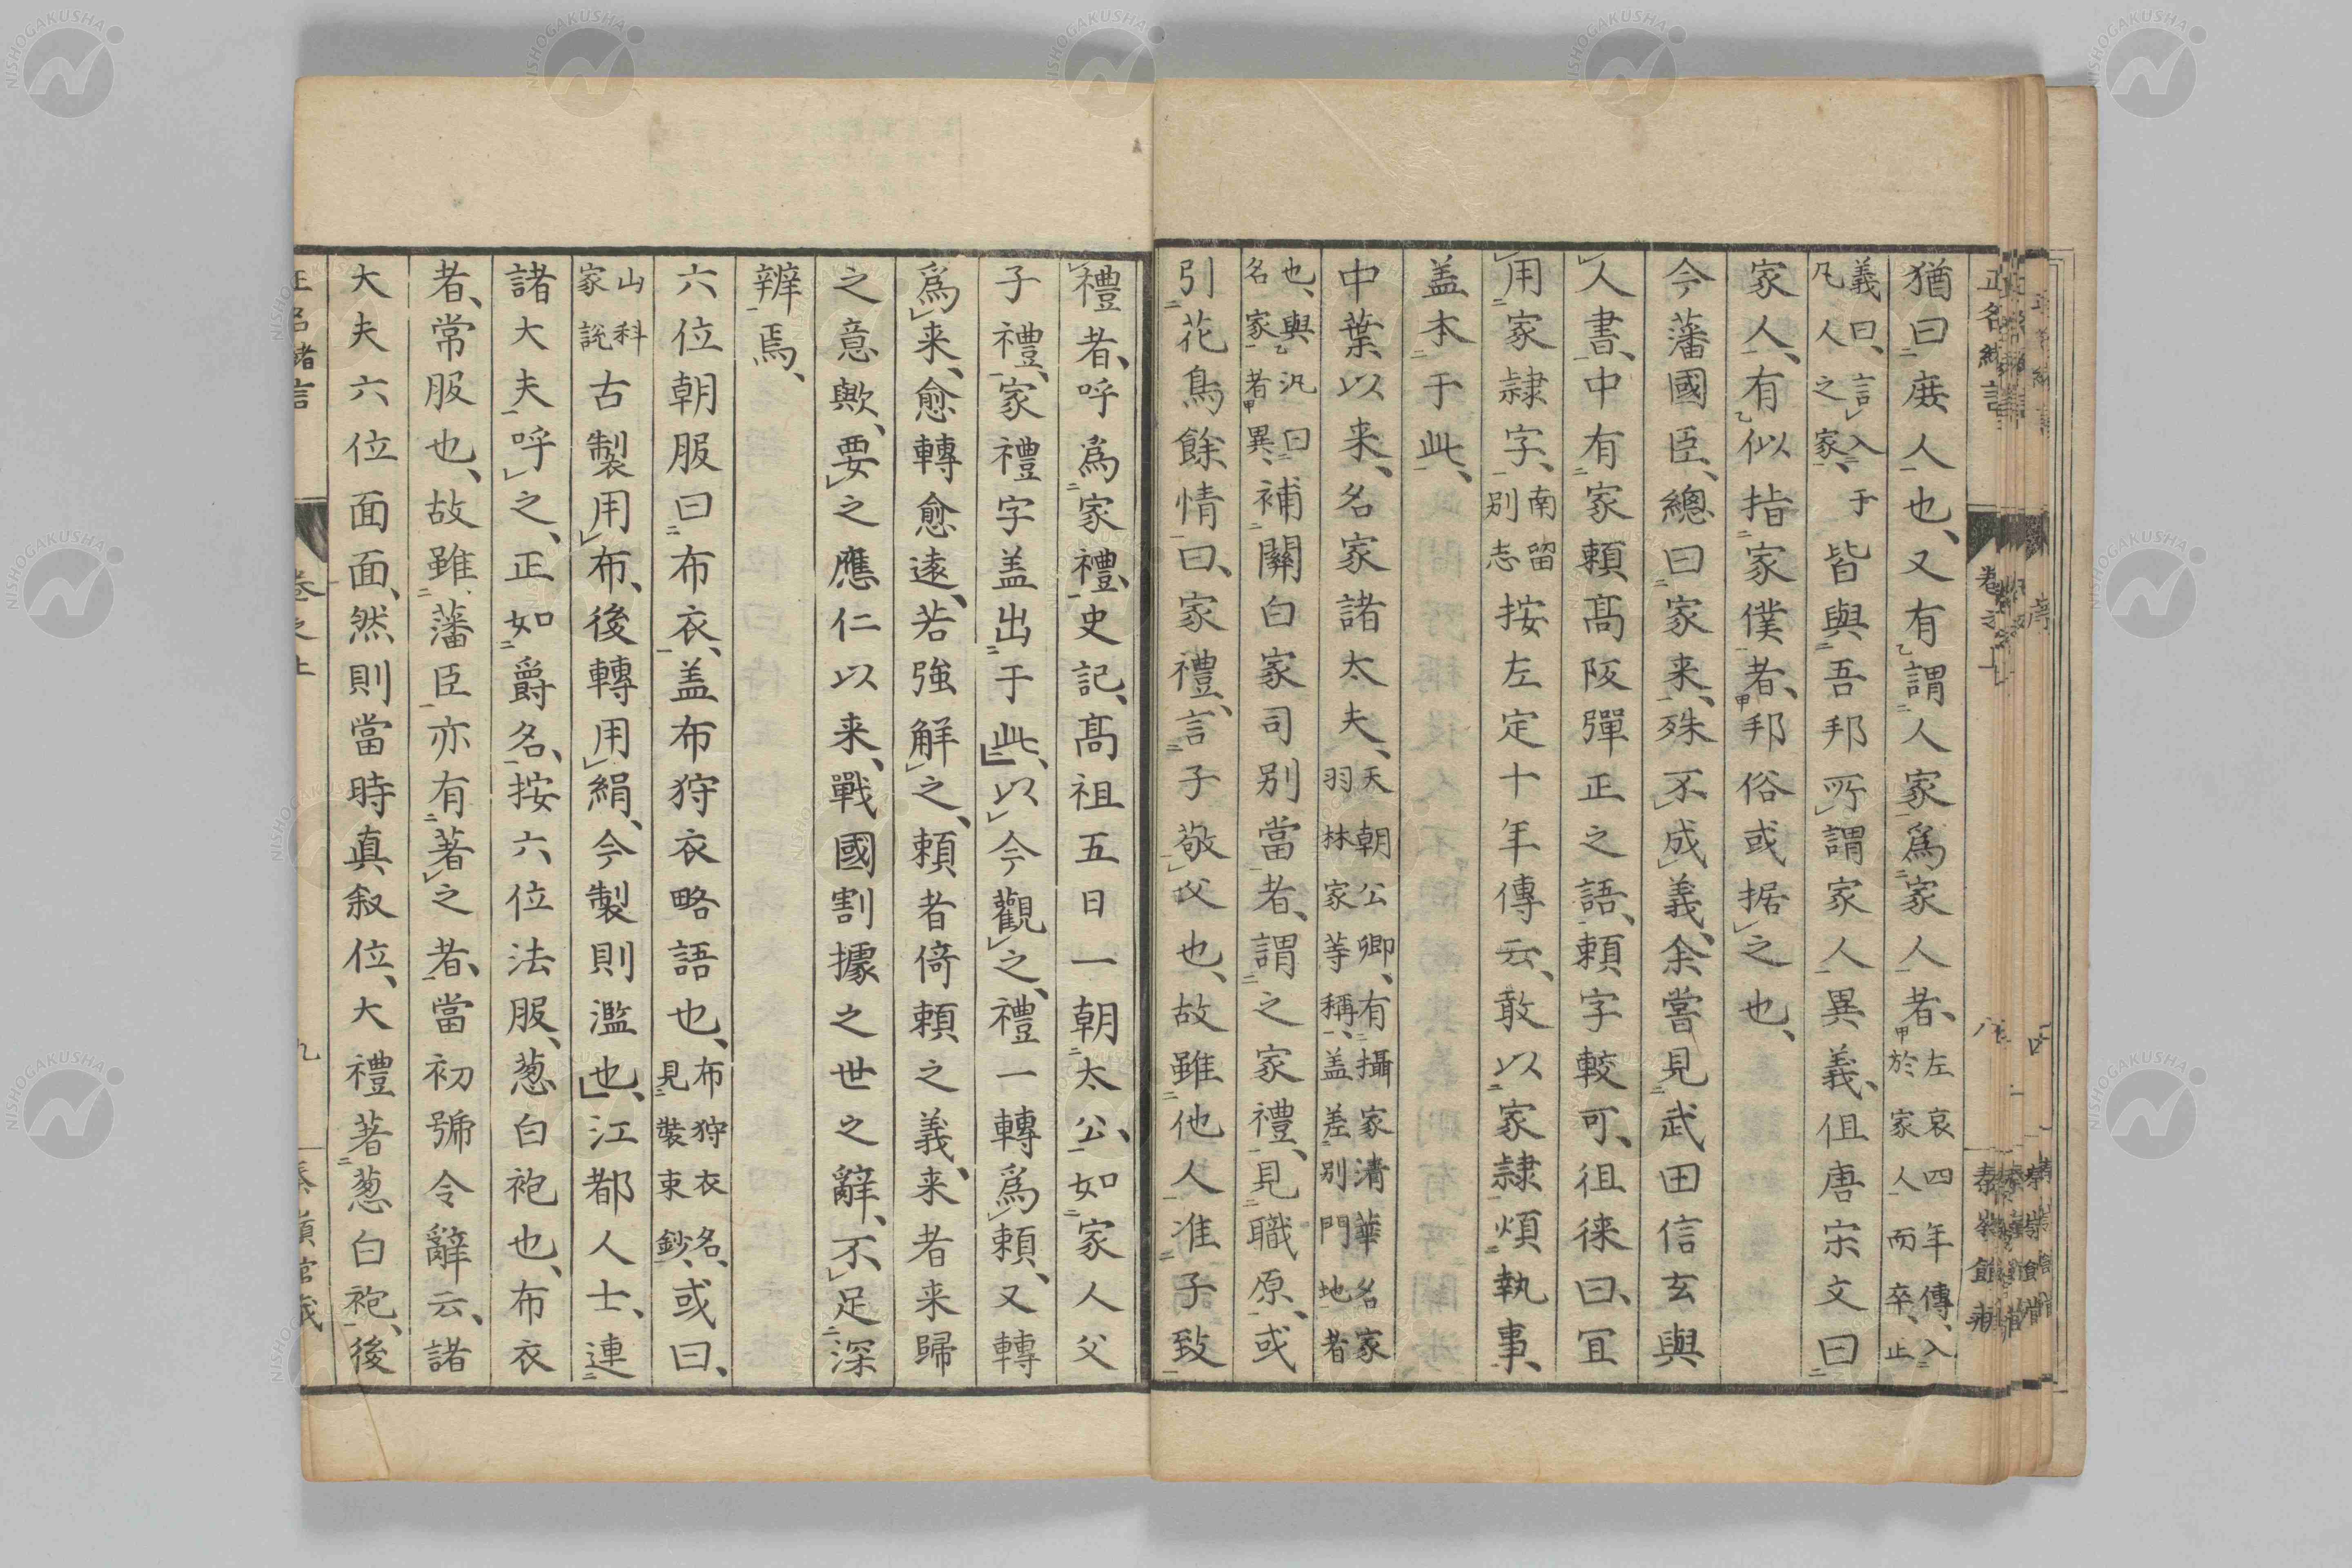 猶曰庻人也、又有謂人家為家人者、左哀四年傳、入於家人而卒、止
義曰、言入于凡人之家、皆與吾邦所謂家人異義、但唐宋文曰
家人、有似指家僕者、邦俗或据之也、
今藩國臣、總曰家来、殊不成義、余嘗見武田信玄與
人書、中有家頼髙阪彈正之語、頼字較可、徂徠曰、宜
用家隷字、南留別志按左定十年傳云、敢以家隷煩執事、
盖本于此、
中葉以来、名家諸太夫、天朝公卿、有攝家清華名家羽林家等稱、盖差別門地者
也、與汎曰名家者異、補關白家司別當者、謂之家禮、見職原、或
引花鳥餘情曰、家禮、言子敬父也、故雖他人准子致
禮者、呼為家禮、史記、髙祖五日一朝太公、如家人父
子禮、家禮字盖出于此、以今觀之、禮一轉為頼、又轉
為来、愈轉愈遠、若強解之、頼者倚頼之義、来者来歸
之意歟、要之應仁以来、戰國割據之世之辭、不足深
辨焉、
六位朝服曰布衣、盖布狩衣略語也、布狩衣名見裝束鈔、或曰、
山科家説古製用布、後轉用絹、今製則濫也、江都人士、連
諸大夫呼之、正如爵名、按六位法服、葱白袍也、布衣
者、常服也、故雖藩臣亦有著之者、當初號令辭云、諸
大夫六位面面、然則當時真叙位、大禮著葱白袍、後